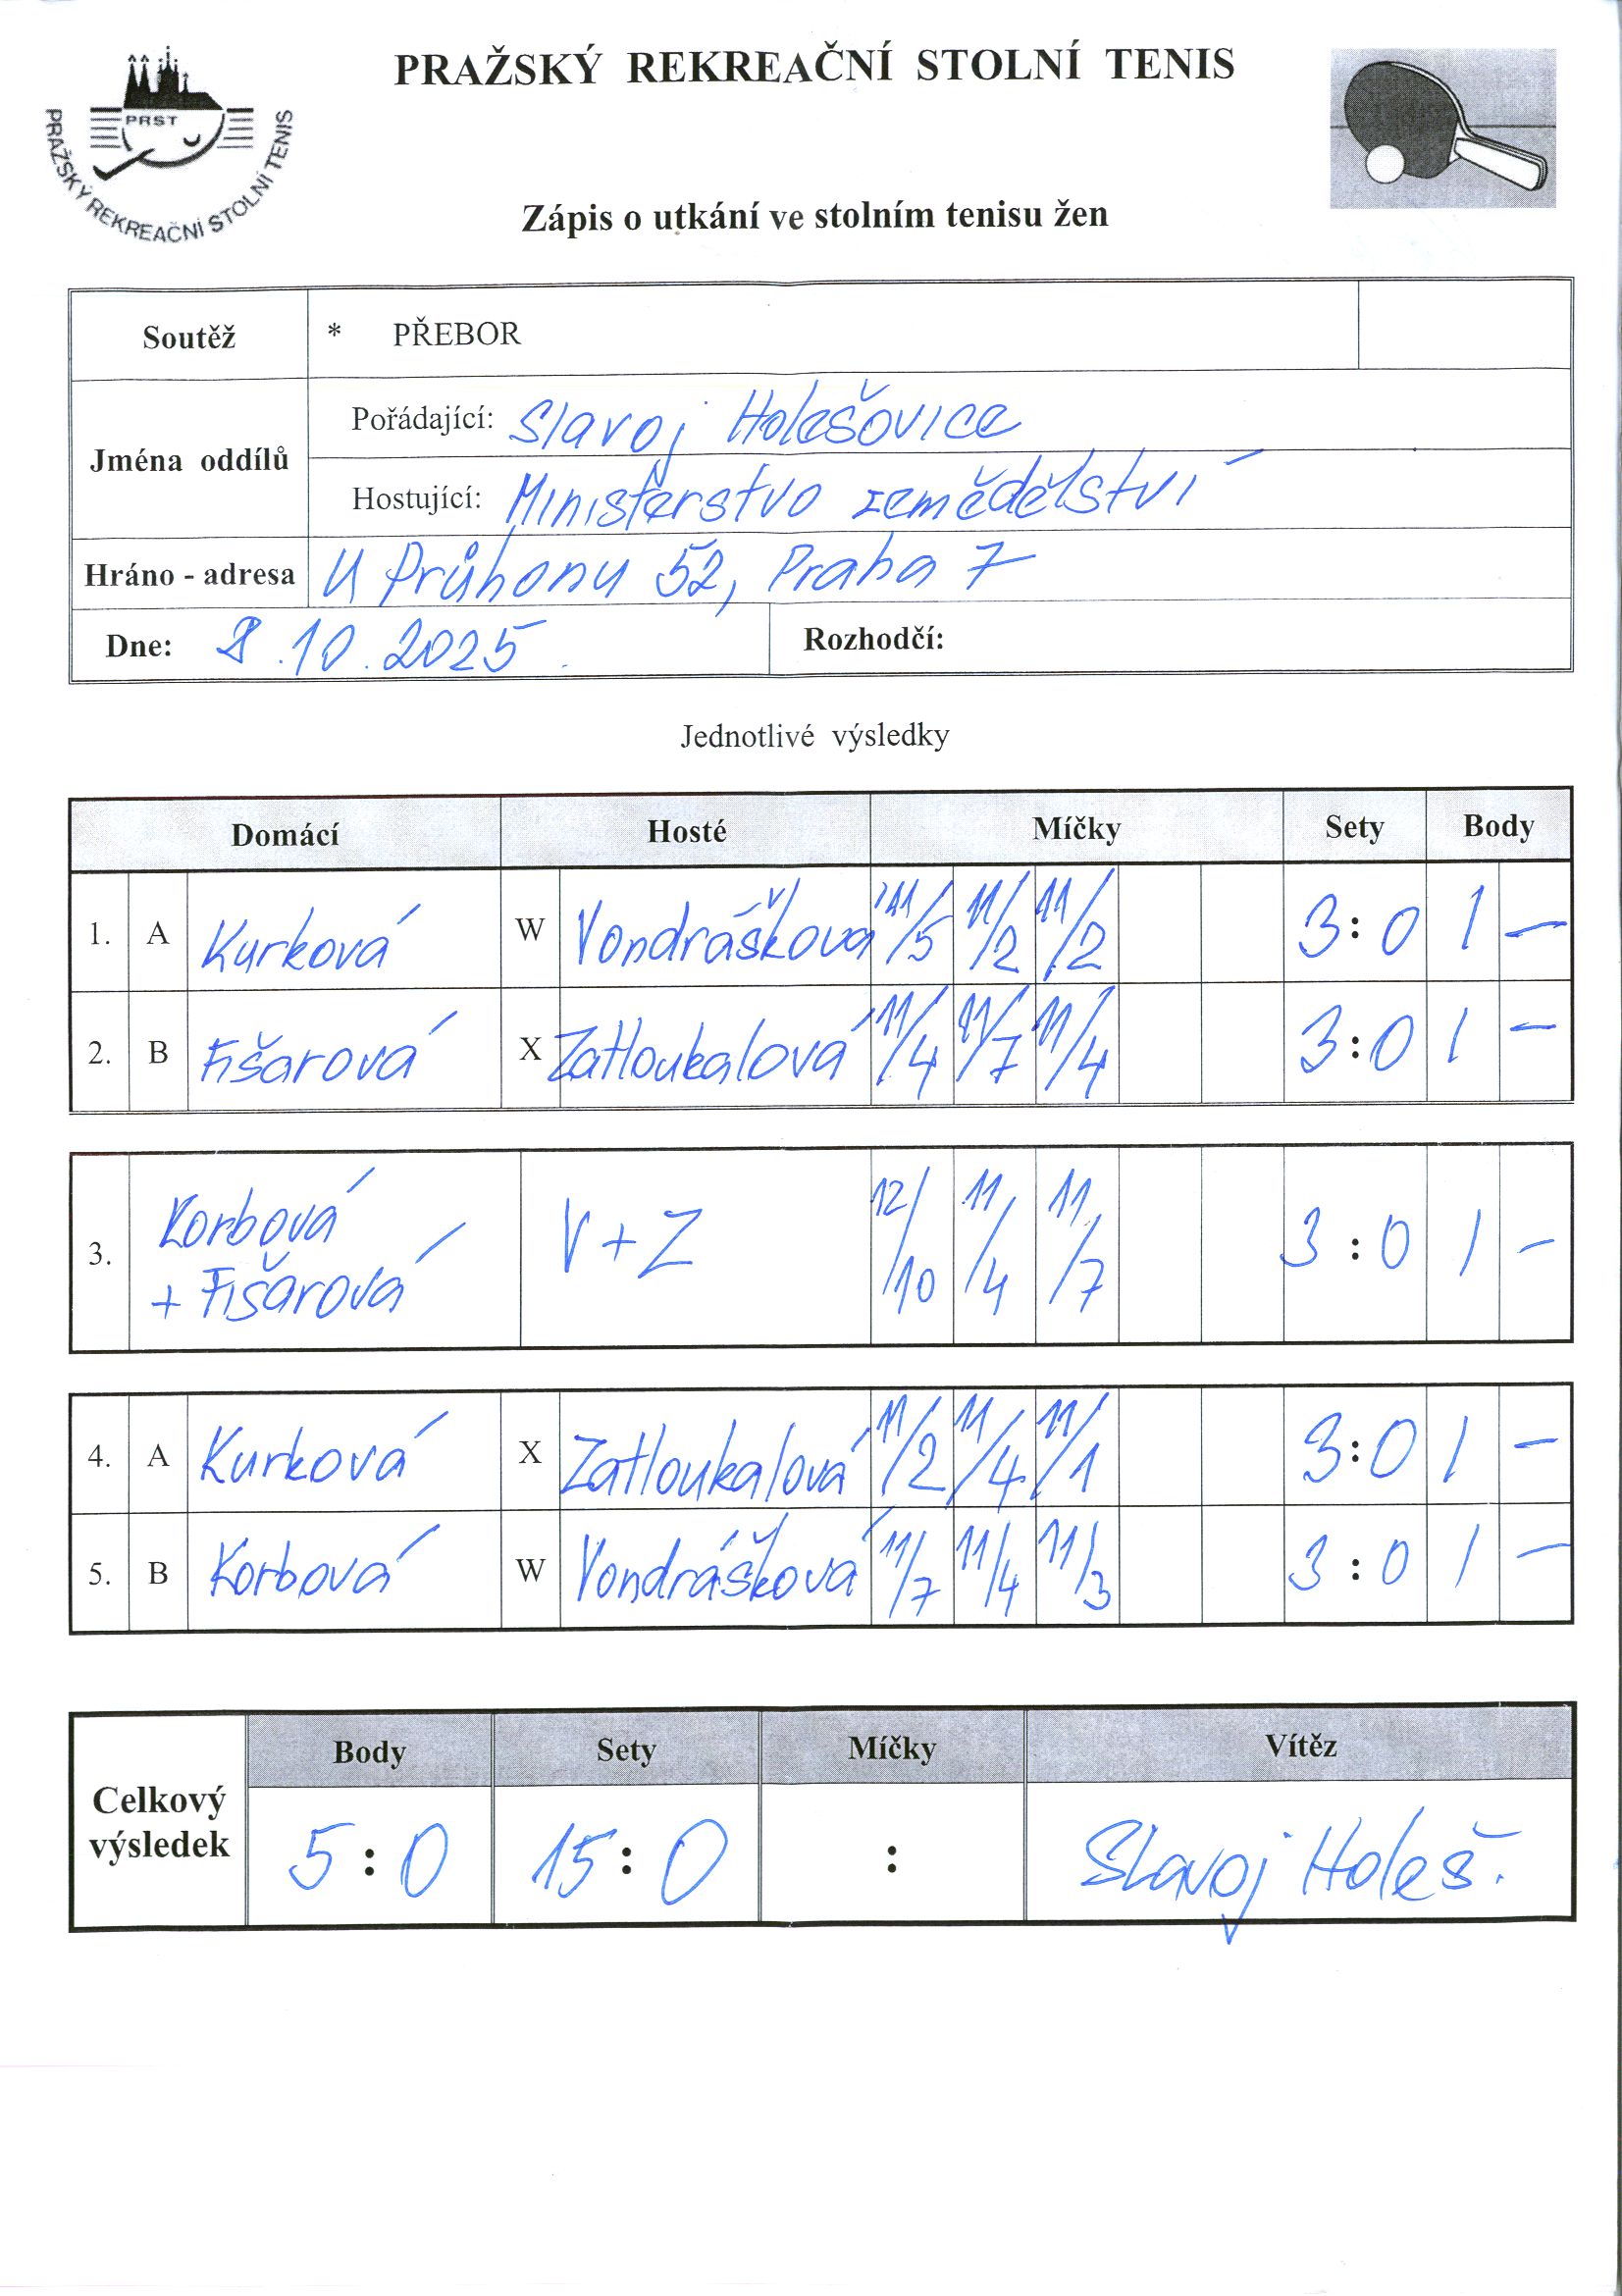 PRAŽSKÝ REKREAČNÍ STOLNÍ TENIS
PRST
PRAŽSKÝ REKREAČNÍ STOLNÍ TENIS
Zápis o utkání ve stolním tenisu žen
Soutěž * PŘEBOR
Jména oddílů
Pořádající: Slavoj Holešovice
Hostující: Ministerstvo zemědělství
Hráno - adresa U Průhonu 52, Praha 7
Dne: 8.10.2025. Rozhodčí:
Jednotlivé výsledky
Domácí Hosté Míčky Sety Body
1. A Kurková W Vondrášková 11/5 11/2 11/2 3:0 1 —
2. B Fišarová X Zatloukalová 11/4 11/7 11/4 3:0 1 —
3. Korbová + Fišarová V+Z 12/10 11/4 11/7 3:0 1 —
4. A Kurková X Zatloukalová 11/2 11/4 11/1 3:0 1 —
5. B Korbová W Vondrášková 11/7 11/4 11/3 3:0 1 —
Celkový výsledek
Body Sety Míčky Vítěz
5:0 15:0 : Slavoj Holeš.